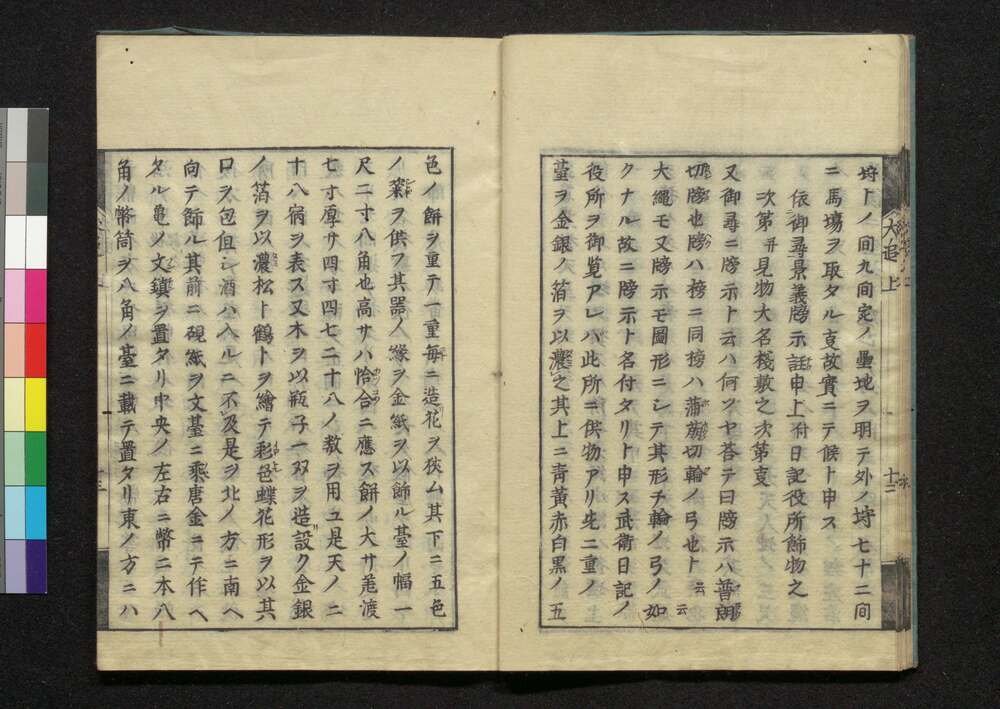 埒トノ間九間宛ノ畳地ヲ明テ外ノ埒七十二間
ニ馬場ヲ取タル支故實ニテ候ト申ス
依御尋景義牓示註申上付日記役所飾物之
次第并見物大名棧敷之次第支
又御尋ニ牓示ト云ハ何ソヤ答テ曰牓示ハ普朗
切牓也牓ハ榜ニ同榜ハ蒲䒄切輪ノ弓也ト云云
大繩モ又牓示モ圖形ニシテ其形チ輪ノ弓ノ如
クナル故ニ牓示ト名付タリト申ス武衛日記ノ
役所ヲ御覧アレハ此所ニ供物アリ先二重ノ
臺ヲ金銀ノ箔ヲ以濃之其上ニ青黄赤白黒ノ五
犬追 上
十二
色ノ餅ヲ重テ一重毎ニ造花ヲ挾ム其下ニ五色
ノ菓ヲ供フ其器ノ縁ヲ金紙ヲ以飾ル臺ノ幅一
尺二寸八角也高サハ恰合ニ應ス餅ノ大サ差渡
七寸厚サ四寸四七二十八ノ数ヲ用ユ是天ノ二
十八宿ヲ表ス又木ヲ以瓶子一双ヲ造設ク金銀
ノ箔ヲ以濃松ト鶴トヲ繪テ彩色蝶花形ヲ以其
口ヲ包但シ酒ハ入ルニ不及是ヲ北ノ方ニ南ヘ
向テ飾ル其前ニ硯紙ヲ文臺ニ乘唐金ニテ作ヘ
タル亀ノ文鎮ヲ置タリ中央ノ左右ニ幣二本八
角ノ幣筒ヲ八角ノ臺ニ載テ置タリ東ノ方ニハ